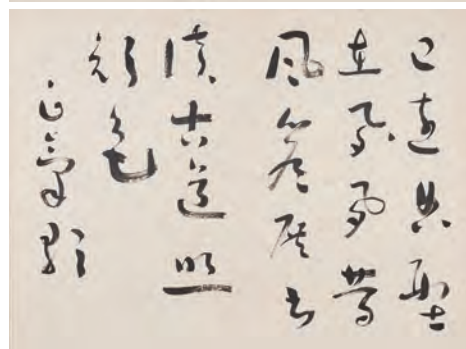 已遠典型
在夙昔
風簷展書
讀古道照
顏色
正氣歌